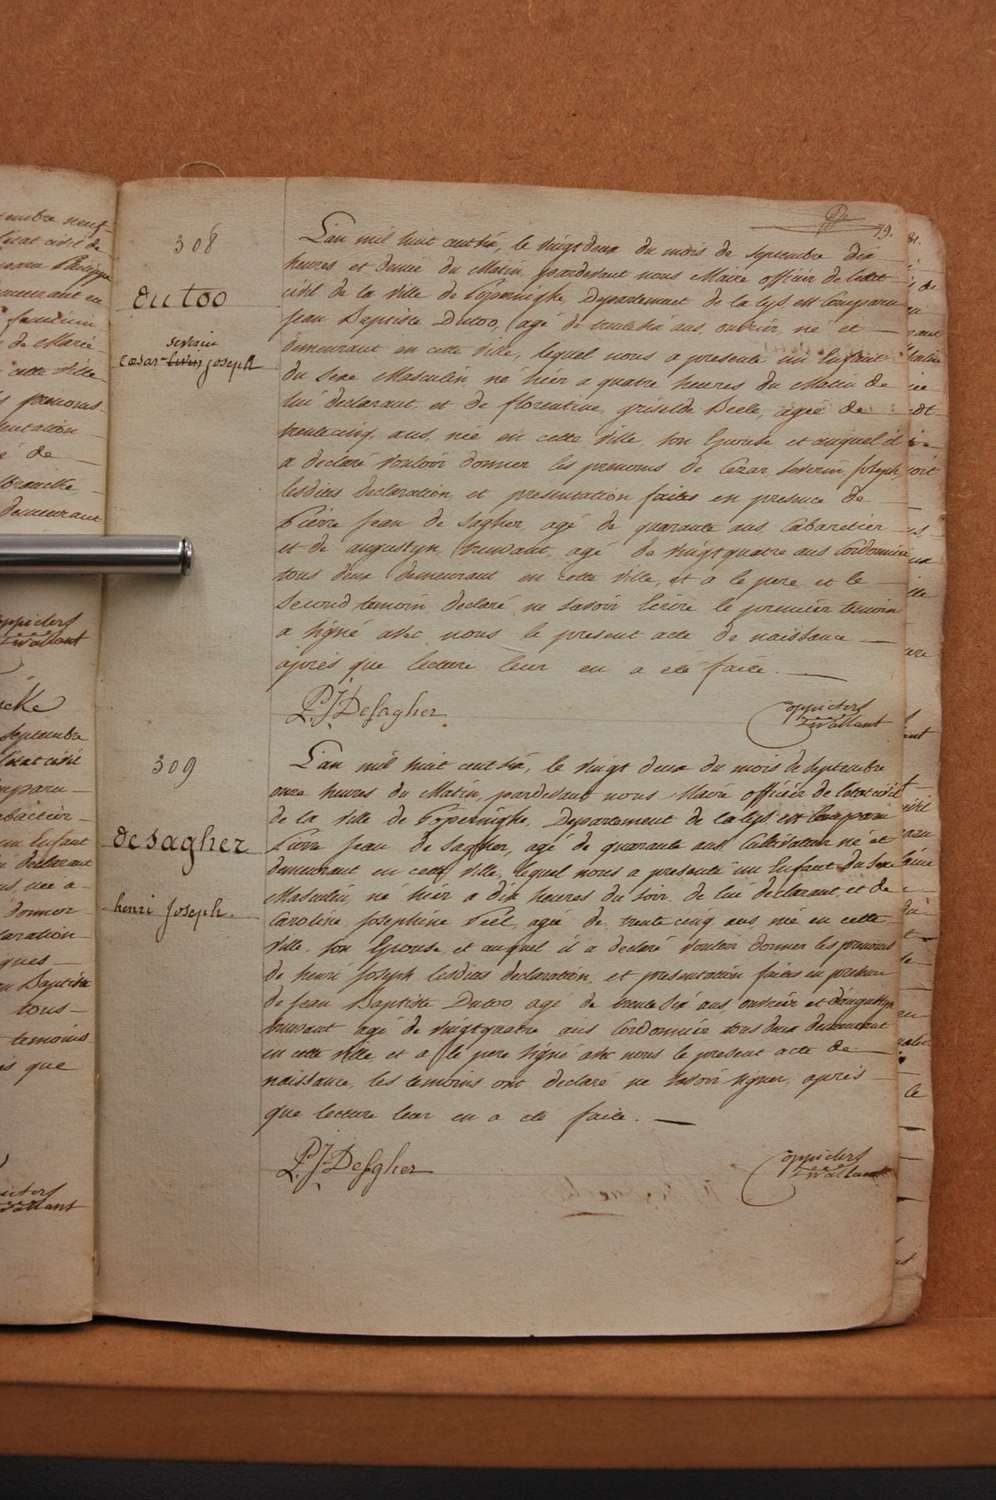 79.
308
dutoo
severin
Cesar livin joseph
L'an mil huit cent six, le vingt deux du mois de septembre dix
heures et demie du Matin, pardevant nous Maire officier de l'etat
civil de la ville de Poperinghe, Departement de la Lys est Comparu
Jean Baptiste Dutoo, agé de trente six ans, ouvrier, né et
demeurant en cette ville, lequel nous a presenté un Enfant
du Sexe Masculin né hier a quatre heures du Matin de
lui declarant, et de florentine griselde Beele, agée de
trente cinq ans, née en cette ville son Epouse et auquel il
a declaré vouloir donner les prenoms de Cezar Severin, Joseph,
lesdites declaration, et presentation faites en presence de
Pierre Jean de Sagher, agé de quarante ans Cabaretier
et de augustyn truwant, agé de vingtquatre ans Cordonnier
tous deux demeurant en cette ville, et a le pere et le
Second temoin declaré ne savoir Ecrire le premier temoin
a signé avec nous le present acte de naissance
après que lecture leur en a eté faite.
P. J. DeSagher
309
desagher
henri Joseph.
L'an mil huit cent six, le vingt deux du mois de septembre
onze heures du Matin, pardevant nous Maire officier de l'etat civil
de la ville de Poperinghe, Departement de la Lys est Comparu
Pierre Jean de Sagher, agé de quarante ans Cultivateur né et
demeurant en cette ville, lequel nous a presenté un Enfant du Sexe
Masculin, né hier a dix heures du soir, de lui declarant et de
Caroline Josephine agée de trente cinq ans, née en cette
ville son Epouse et auquel il a declaré vouloir donner les prenoms
de henri Joseph lesdites declaration, et presentation faites en presence
de Jean Baptiste Dutoo agé de trente Six ans ouvrier et d'augustyn
truwant agé de vingtquatre ans Cordonnier tous deux demeurant
en cette ville et a le pere signé avec nous le present acte de
naissance, les temoins ont declaré ne savoir signer, après
que lecture leur en a eté faite.
P. J. DeSagher